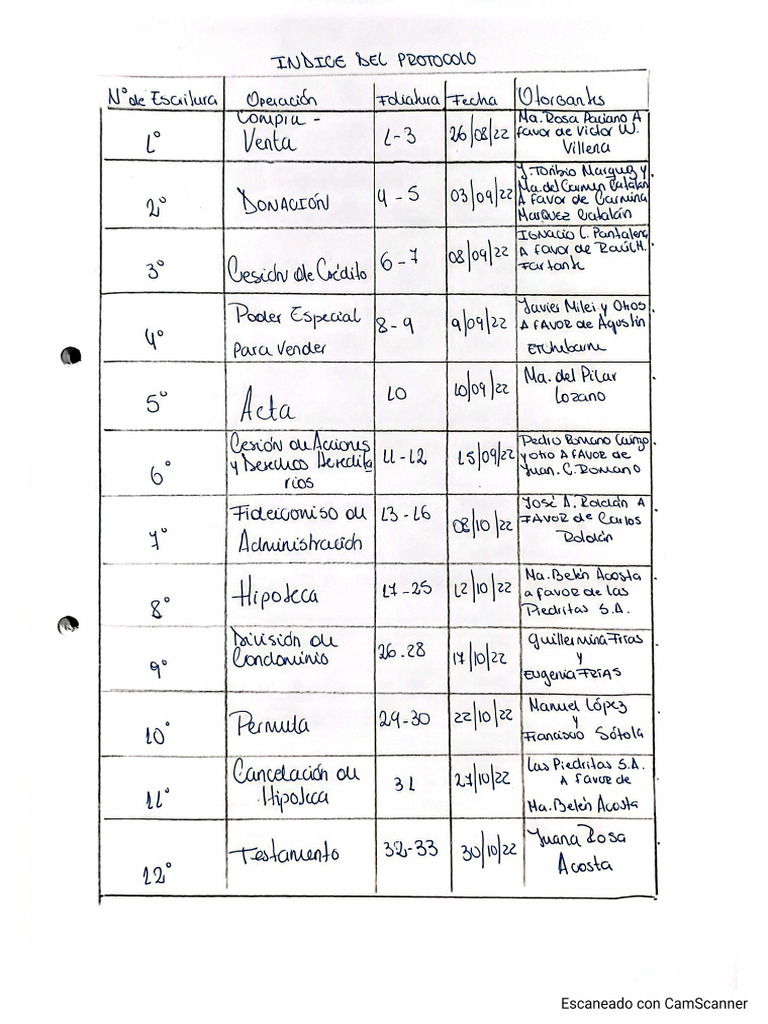 INDICE DEL PROTOCOLO
N° de Escritura Operación Foliatura Fecha Otorgantes
1° Compra - Venta 1-3 26/08/22 Ma. Rosa Paciano A favor de Victor W. Villena
2° DONACIÓN 4-5 03/09/22 J. Toribio Marquez y Ma. del Carmen Catalán A favor de Carmina MARQUEZ Catalán
3° Cesión de Crédito 6-7 08/09/22 IGNACIO C. A favor de Raúl M.
4° Poder Especial Para Vender 8-9 9/09/22 Javier Milei y Otros A FAVOR de Agustín Etchebarne
5° Acta 10 10/09/22 Ma. del Pilar Lozano
6° Cesión de Acciones y Derechos Hereditarios 11-12 15/09/22 Pedro Romano y otro A FAVOR de Juan. C. Romano
7° Fideicomiso de Administración 13-16 08/10/22 José A. Roldán A FAVOR de Carlos Roldán
8° Hipoteca 17-25 12/10/22 Ma. Belén Acosta a favor de las Piedritas S.A.
9° División de Condominio 26-28 17/10/22 Guillermina Frias y Eugenia FRÍAS
10° Permuta 29-30 22/10/22 Manuel López y Francisco Sótola
11° Cancelación de Hipoteca 31 27/10/22 Las Piedritas S.A. A favor de Ma. Belén Acosta
12° Testamento 32-33 30/10/22 Juana Rosa Acosta
Escaneado con CamScanner